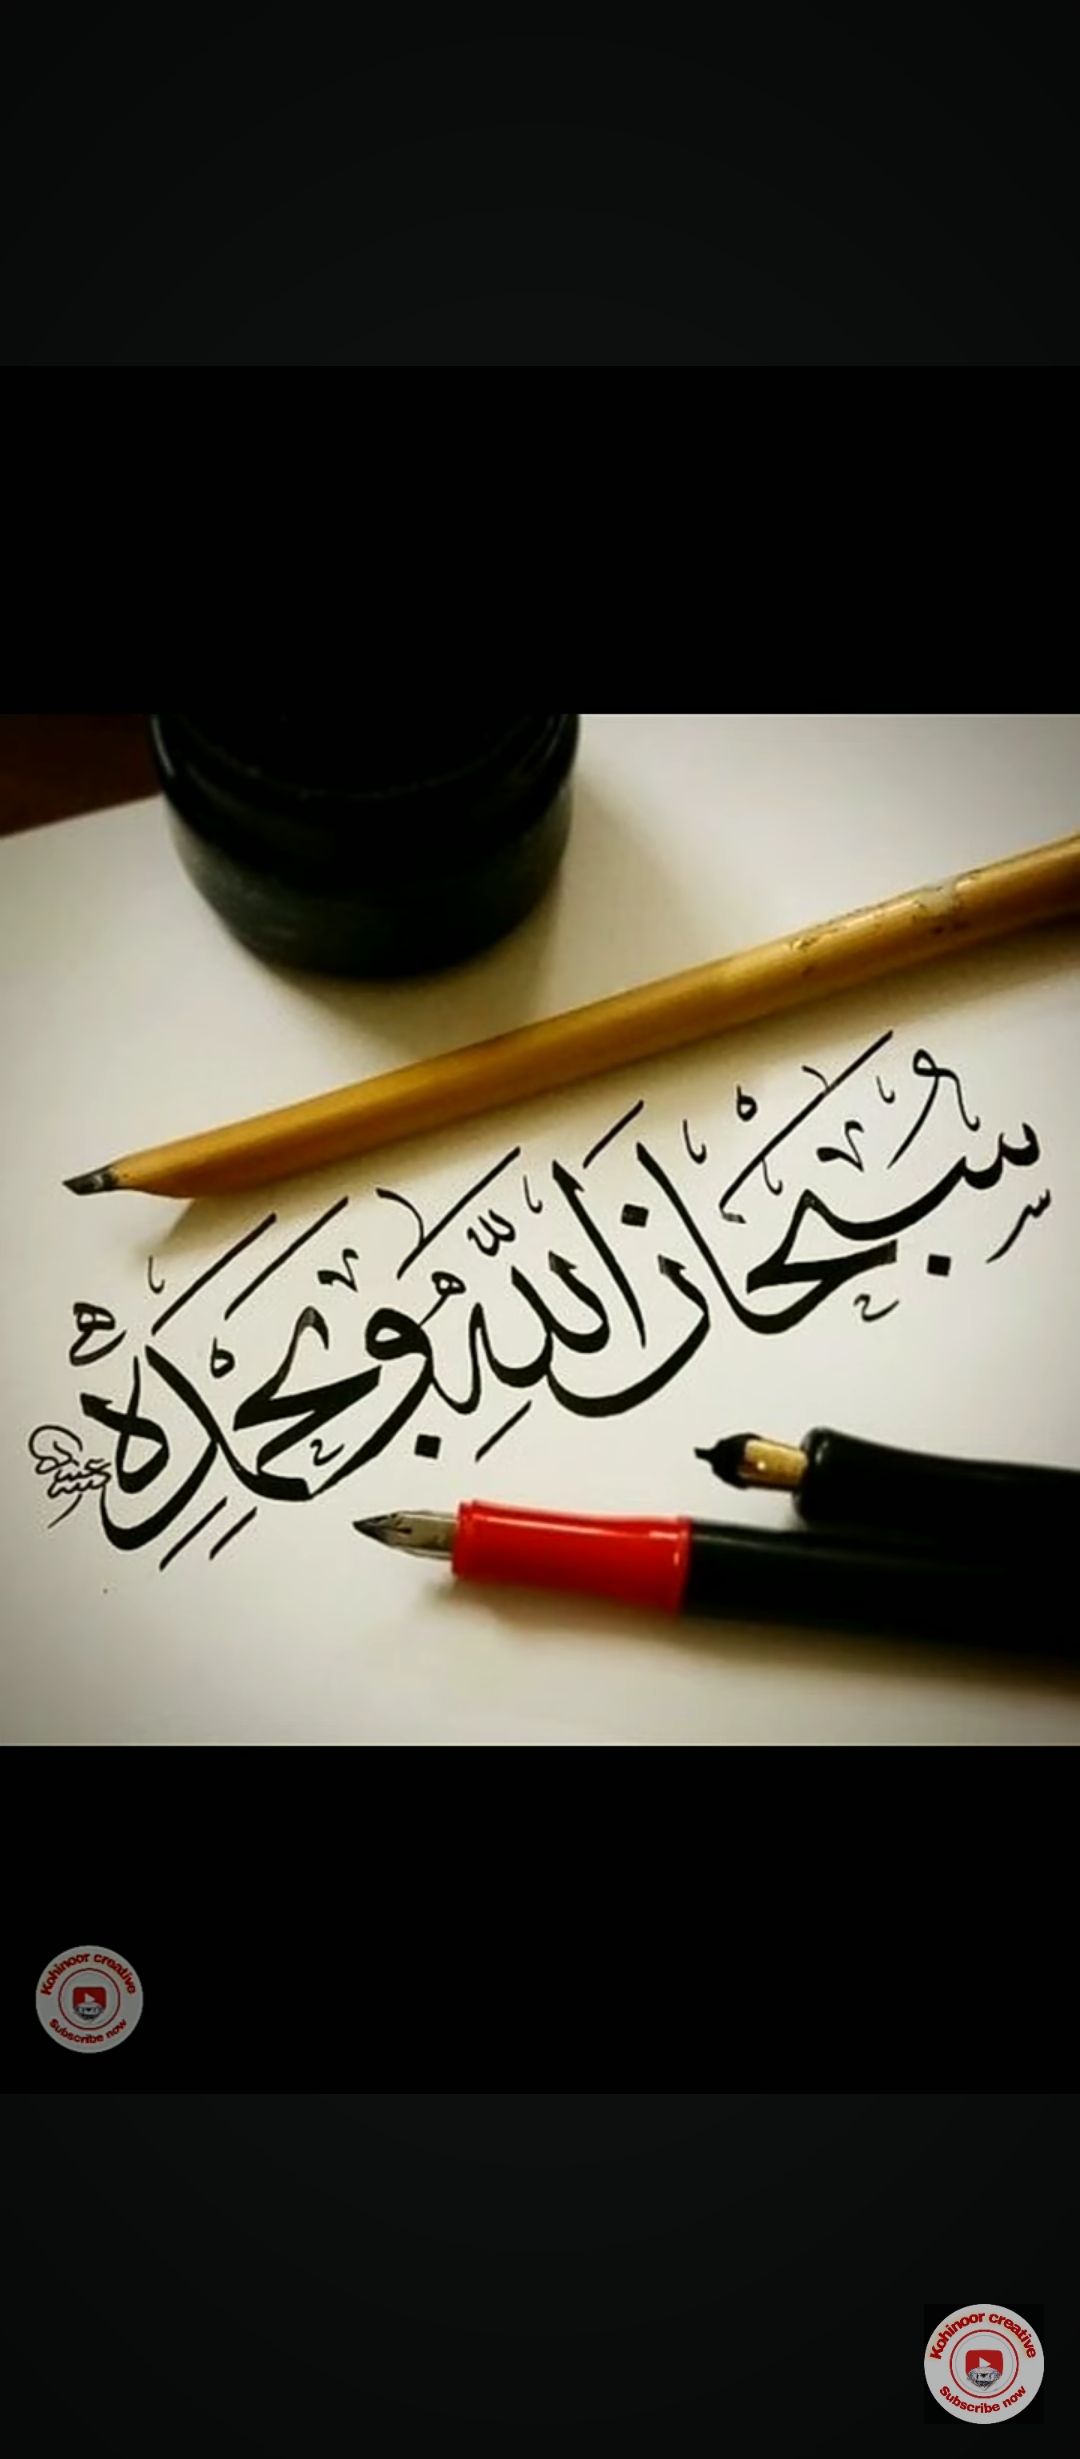 سُبْحَانَ اللّٰهِ وَبِحَمْدِهِ
Kohinoor creative
Subscribe now
Kohinoor creative
Subscribe now